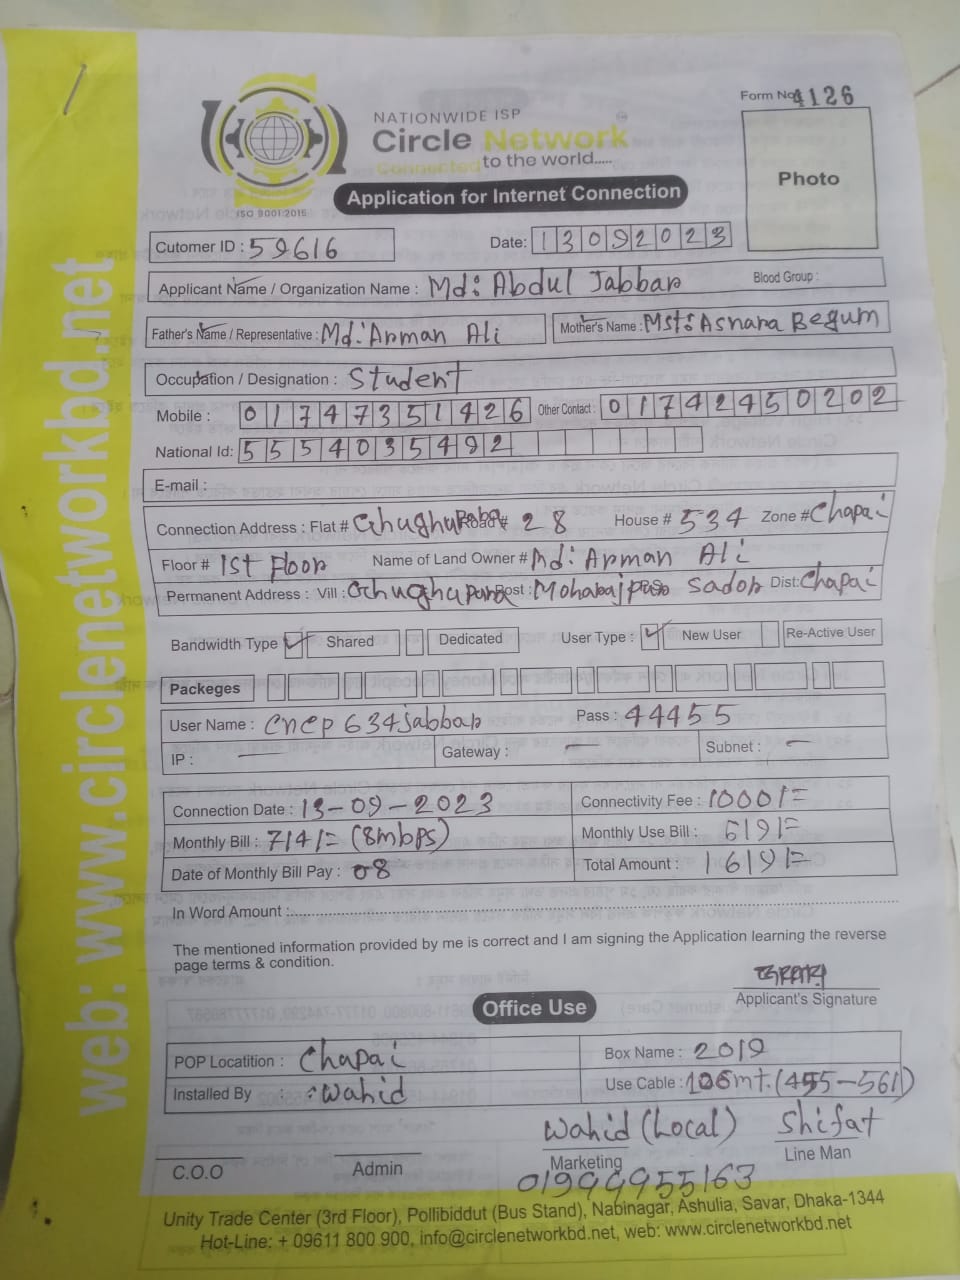 Form No. 4126
NATIONWIDE ISP
Circle Network
Connected to the world.....
ISO 9001:2015
Application for Internet Connection
Photo
Cutomer ID : 59616 Date: 13092023
Applicant Name / Organization Name : Md: Abdul Jabbar Blood Group :
Father's Name / Representative : Md: Arman Ali Mother's Name : Mst: Asnara Begum
Occupation / Designation : Student
Mobile : 01747351426 Other Contact : 01742450202
National Id: 5554035492
E-mail :
Connection Address : Flat # Ghughupara Road # 28 House # 534 Zone # Chapai
Floor # 1st Floor Name of Land Owner # Md: Arman Ali
Permanent Address : Vill : Ghughupara Post : Mohorajpur Sador Dist: Chapai
Bandwidth Type ✓ Shared Dedicated User Type : ✓ New User Re-Active User
Packeges
User Name : cncp634jabbar Pass : 44455
IP : — Gateway : — Subnet : —
Connection Date : 13-09-2023 Connectivity Fee : 1000/=
Monthly Bill : 714/= (8mbps) Monthly Use Bill : 619/=
Date of Monthly Bill Pay : 08 Total Amount : 1619/=
In Word Amount :
The mentioned information provided by me is correct and I am signing the Application learning the reverse
page terms & condition.
Applicant's Signature
Office Use
POP Locatition : Chapai Box Name : 2019
Installed By : Wahid Use Cable : 106mt. (455-561)
Wahid (Local) Shifat
C.O.O Admin Marketing Line Man
01999955163
Unity Trade Center (3rd Floor), Pollibiddut (Bus Stand), Nabinagar, Ashulia, Savar, Dhaka-1344
Hot-Line: + 09611 800 900, info@circlenetworkbd.net, web: www.circlenetworkbd.net
web: www.circlenetworkbd.net